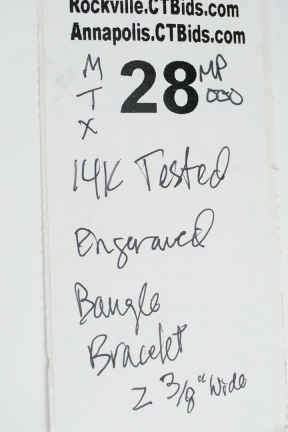 Rockville.CTBids.com
Annapolis.CTBids.com
M
T
X
28
MP
000
14K Tested
Engraved
Bangle
Bracelet
2 3/8" Wide